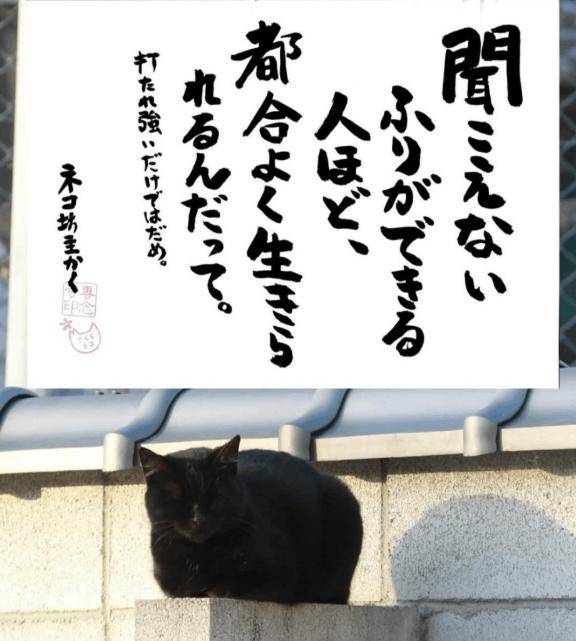 聞こえない
ふりができる
人ほど、
都合よく生きら
れるんだって。
打たれ強いだけではだめ。
ネコ坊主かく